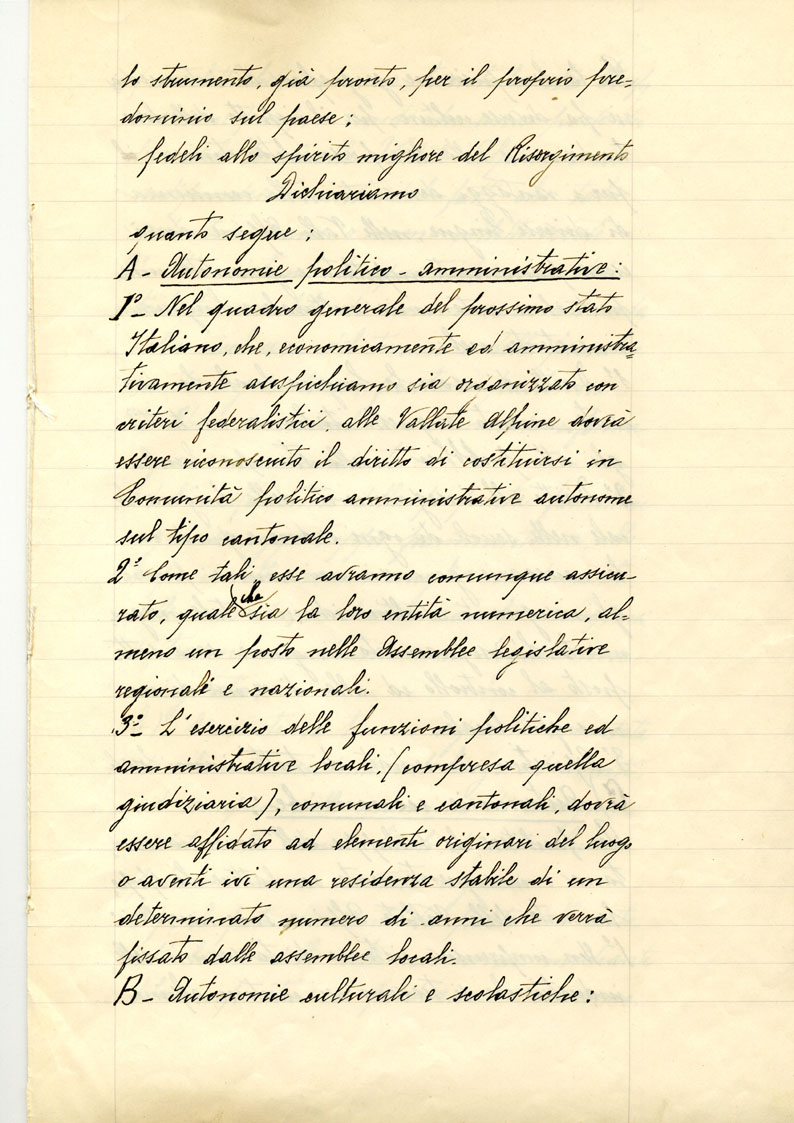 lo strumento, già pronto, per il proprio pre=
dominio sul paese;
fedeli allo spirito migliore del Risorgimento
Dichiariamo
quanto segue:
A - Autonomie politico - amministrative:
1º- Nel quadro generale del prossimo stato
Italiano, che, economicamente ed amministra=
tivamente auspichiamo sia organizzato con
criteri federalistici, alle Vallate Alpine dovrà
essere riconosciuto il diritto di costituirsi in
Comunità politico amministrative autonome
sul tipo cantonale.
2º Come tali esse avranno comunque assicu-
rato, quale che sia la loro entità numerica, al-
meno un posto nelle Assemblee legislative
regionali e nazionali.
3º- L'esercizio delle funzioni politiche ed
amministrative locali, (compresa quella
giudiziaria), comunali e cantonali, dovrà
essere affidato ad elementi originari del luogo
o aventi ivi una residenza stabile di un
determinato numero di anni che verrà
fissato dalle assemblee locali.
B - Autonomie culturali e scolastiche: